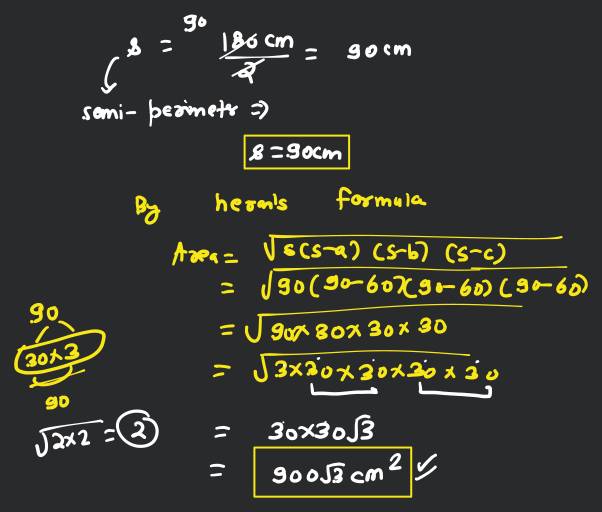 s = 90 180 cm / 2 = 90 cm
semi-perimetr ⇒
s = 90cm
By heron's formula
Area = √s(s-a) (s-b) (s-c)
= √90(90-60)(90-60) (90-60)
= √90×30×30×30
= √3×30×30×30×30
90
30×3
90
√2×2 = 2
= 30×30√3
= 900√3 cm² ✓